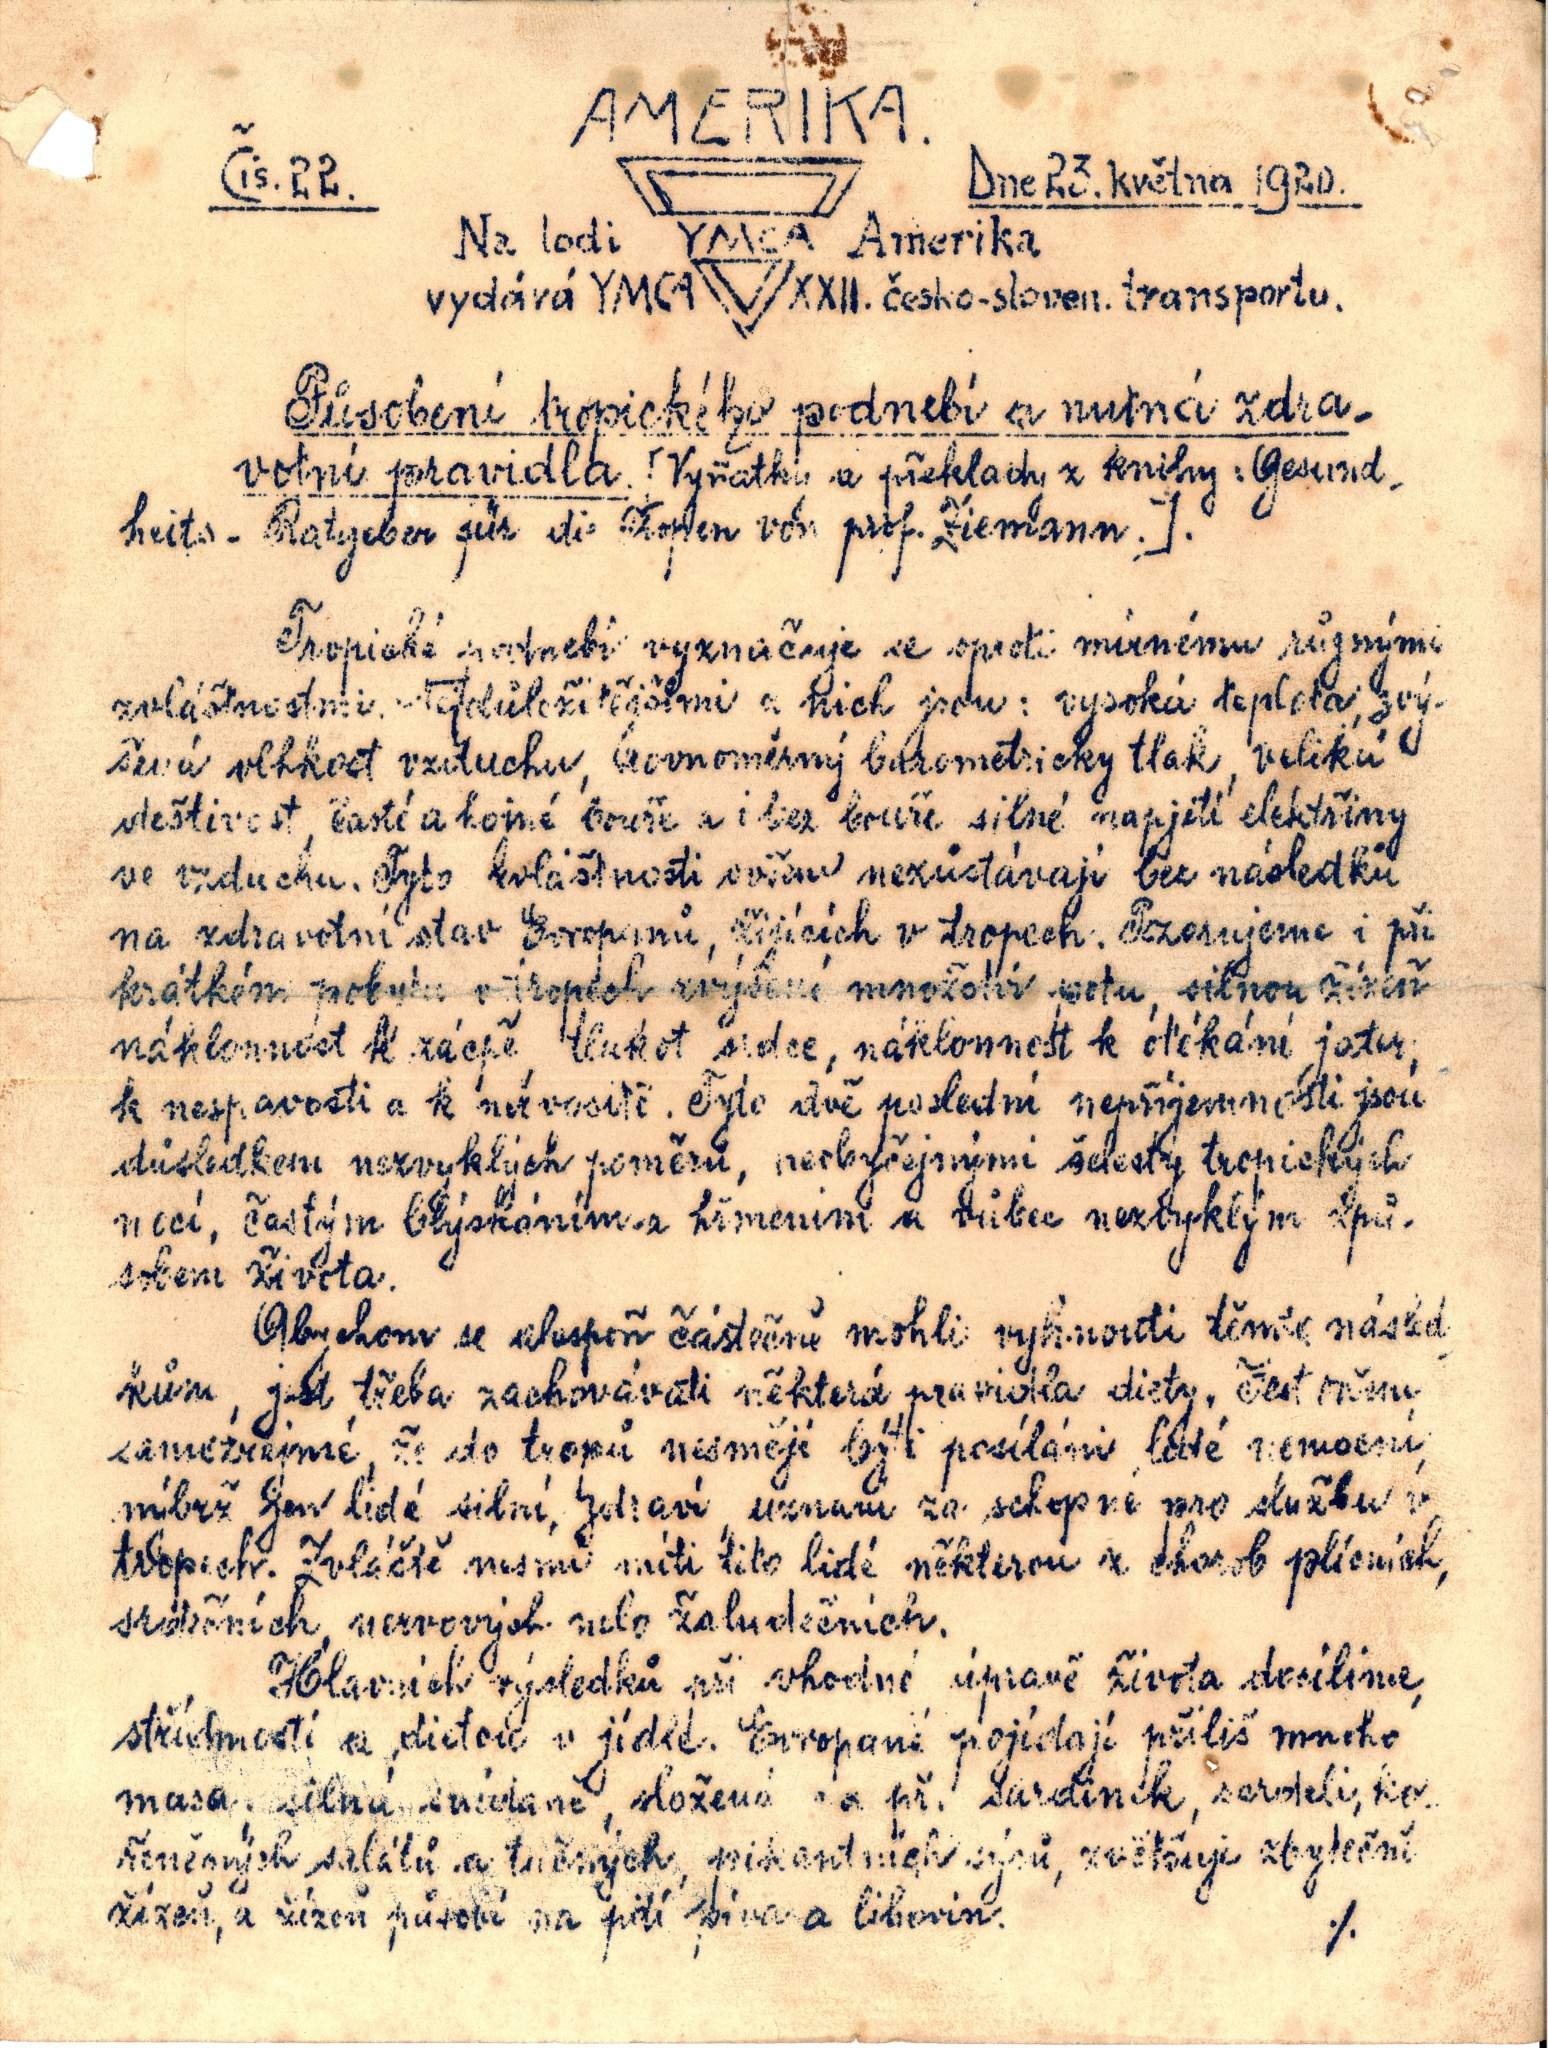 AMERIKA.
Čís. 22.
Dne 23. května 1920.
Na lodi YMCA Amerika
vydává YMCA XXII. česko-sloven. transportu.
Působení tropického podnebí a nutná zdra-
votní pravidla. [Vyňatky a překlady z knihy: Gesund-
heits-Ratgeber für die Tropen von prof. Ziemann.].
Tropické podnebí vyznačuje se oproti mírnému různými
zvláštnostmi. Nejdůležitějšími z nich jsou: vysoká teplota, zvý-
šená vlhkost vzduchu, rovnoměrný barometrický tlak, veliká
deštivost, časté a hojné bouře a i bez bouře silné napjetí elektřiny
ve vzduchu. Tyto zvláštnosti ovšem nezůstávají bez následků
na zdravotní stav Evropanů, žijících v tropech. Pozorujeme i při
krátkém pobytu v tropech zvýšené množství potu, silnou žízeň
náklonnost k zácpě, tlukot srdce, náklonnost k otékání jater,
k nespavosti a k nervositě. Tyto dvě poslední nepříjemnosti jsou
důsledkem nezvyklých poměrů, neobyčejnými šelesty tropických
nocí, častým blýskáním a hřmením a vůbec nezvyklým způ-
sobem života.
Abychom se alespoň částečně mohli vyhnouti těmto násled-
kům, jest třeba zachovávati některá pravidla diety. Jest ovšem
samozřejmé, že do tropů nesmějí býti posíláni lidé nemocní,
nýbrž jen lidé silní, zdraví, uznaní za schopné pro službu v
tropech. Zvláště nesmí míti tito lidé některou z chorob plícních,
srdečních, nervových nebo žaludečních.
Hlavních výsledků při vhodné úpravě života docílíme,
střídmostí a dietou v jídle. Evropané pojídají příliš mnoho
masa. silná snídaně, složená na př. Sardinek, sardeli, ko-
řeněných salátů a tučných, pikantních sýrů, zvětšuje zbytečně
žízeň, a žízeň působí na pití piva a lihovin.
./.